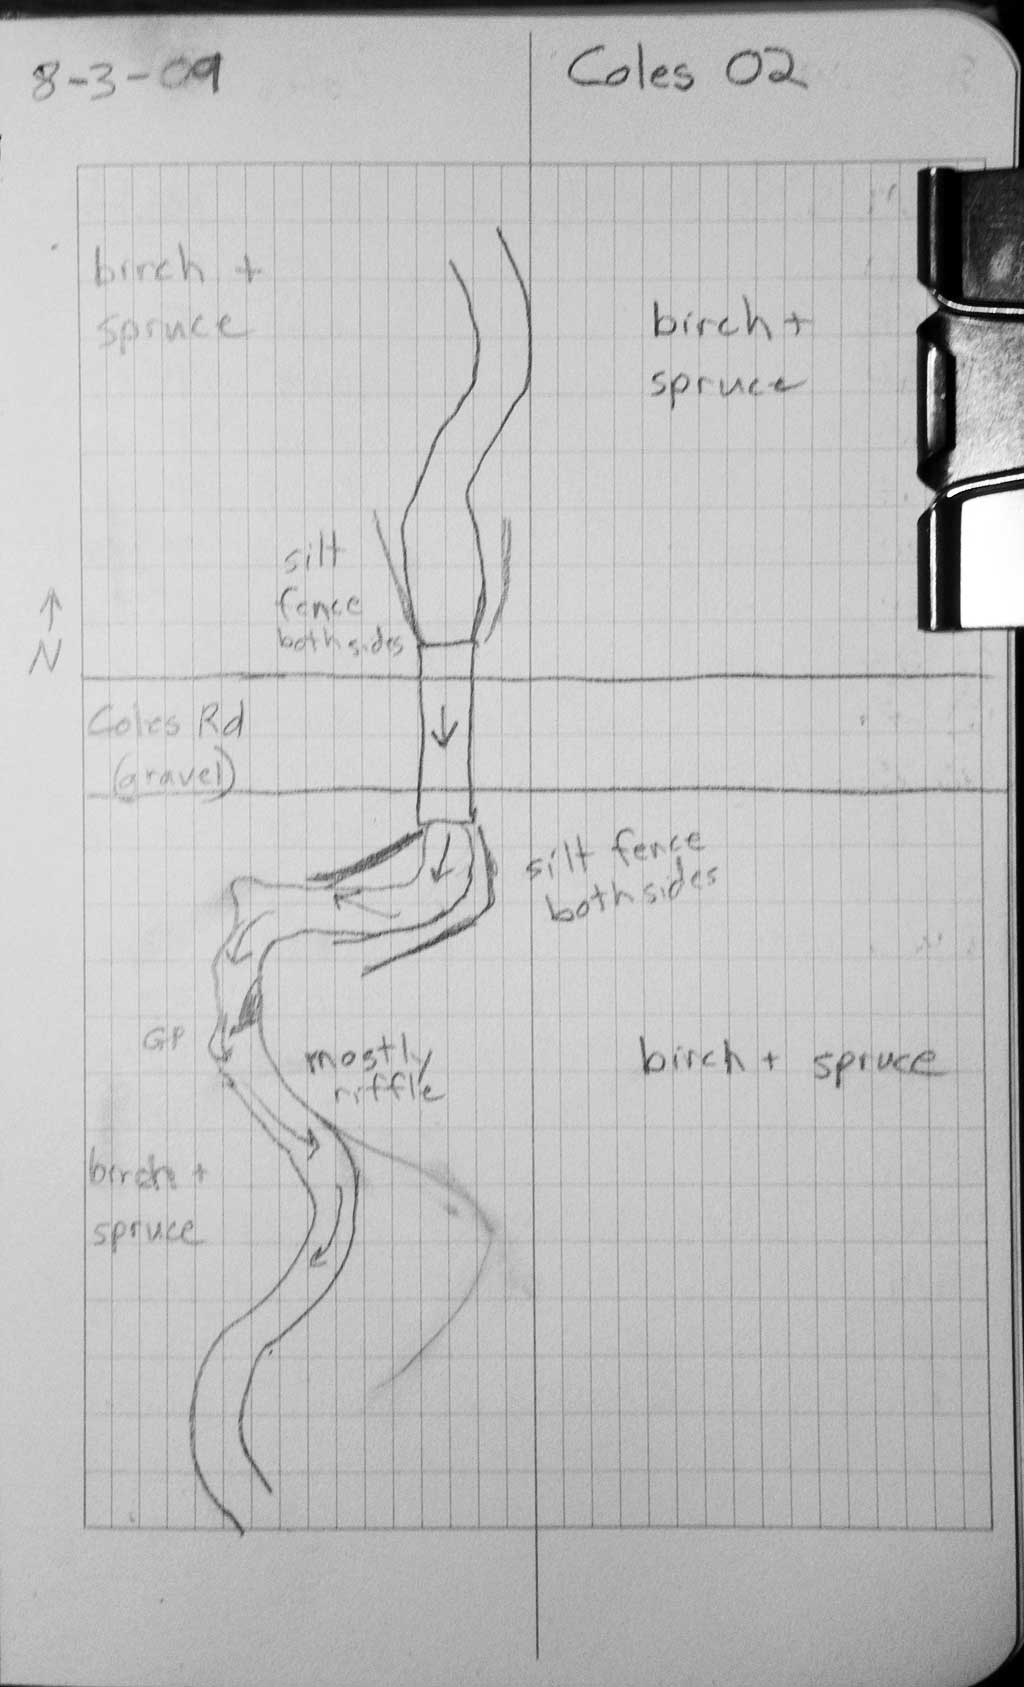 8-3-09
Coles 02
birch +
spruce
birch +
spruce
silt
fence
both sides
N
Coles Rd
(gravel)
silt fence
both sides
GP
mostly
riffle
birch + spruce
birch +
spruce